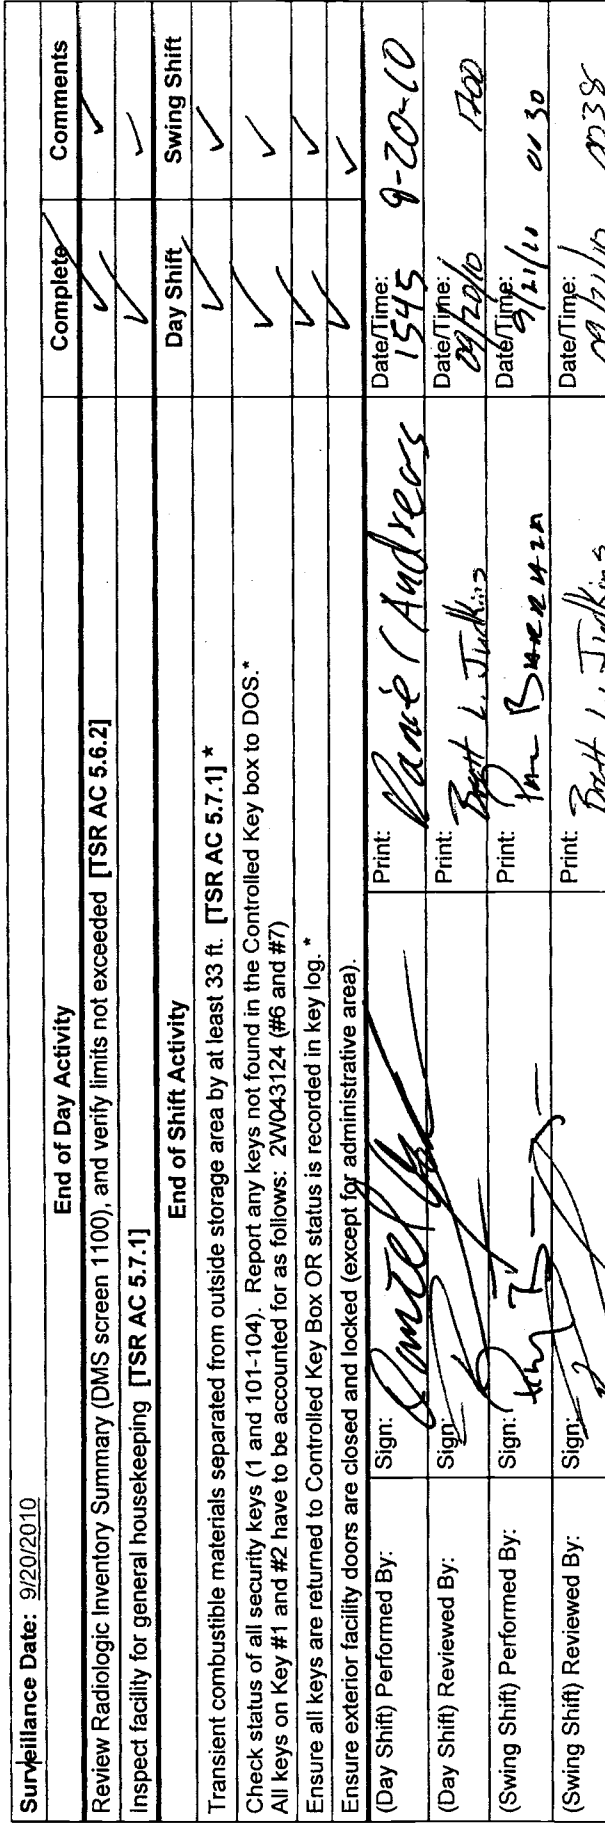 Surveillance Date: 9/20/2010
End of Day Activity Complete Comments
Review Radiologic Inventory Summary (DMS screen 1100), and verify limits not exceeded [TSR AC 5.6.2] ✓ ✓
Inspect facility for general housekeeping [TSR AC 5.7.1] ✓ ✓
End of Shift Activity Day Shift Swing Shift
Transient combustible materials separated from outside storage area by at least 33 ft. [TSR AC 5.7.1] * ✓ ✓
Check status of all security keys (1 and 101-104). Report any keys not found in the Controlled Key box to DOS.* ✓ ✓
All keys on Key #1 and #2 have to be accounted for as follows: 2W043124 (#6 and #7)
Ensure all keys are returned to Controlled Key Box OR status is recorded in key log. * ✓ ✓
Ensure exterior facility doors are closed and locked (except for administrative area). ✓ ✓
(Day Shift) Performed By: Sign: Print: Daniel Andreas Date/Time: 1545 9-20-10
(Day Shift) Reviewed By: Sign: Print: Brett L. Judkins Date/Time: 09/20/10 1700
(Swing Shift) Performed By: Sign: Print: Date/Time: 9/21/10 0030
(Swing Shift) Reviewed By: Sign: Print: Brett L. Judkins Date/Time: 09/21/10 0038